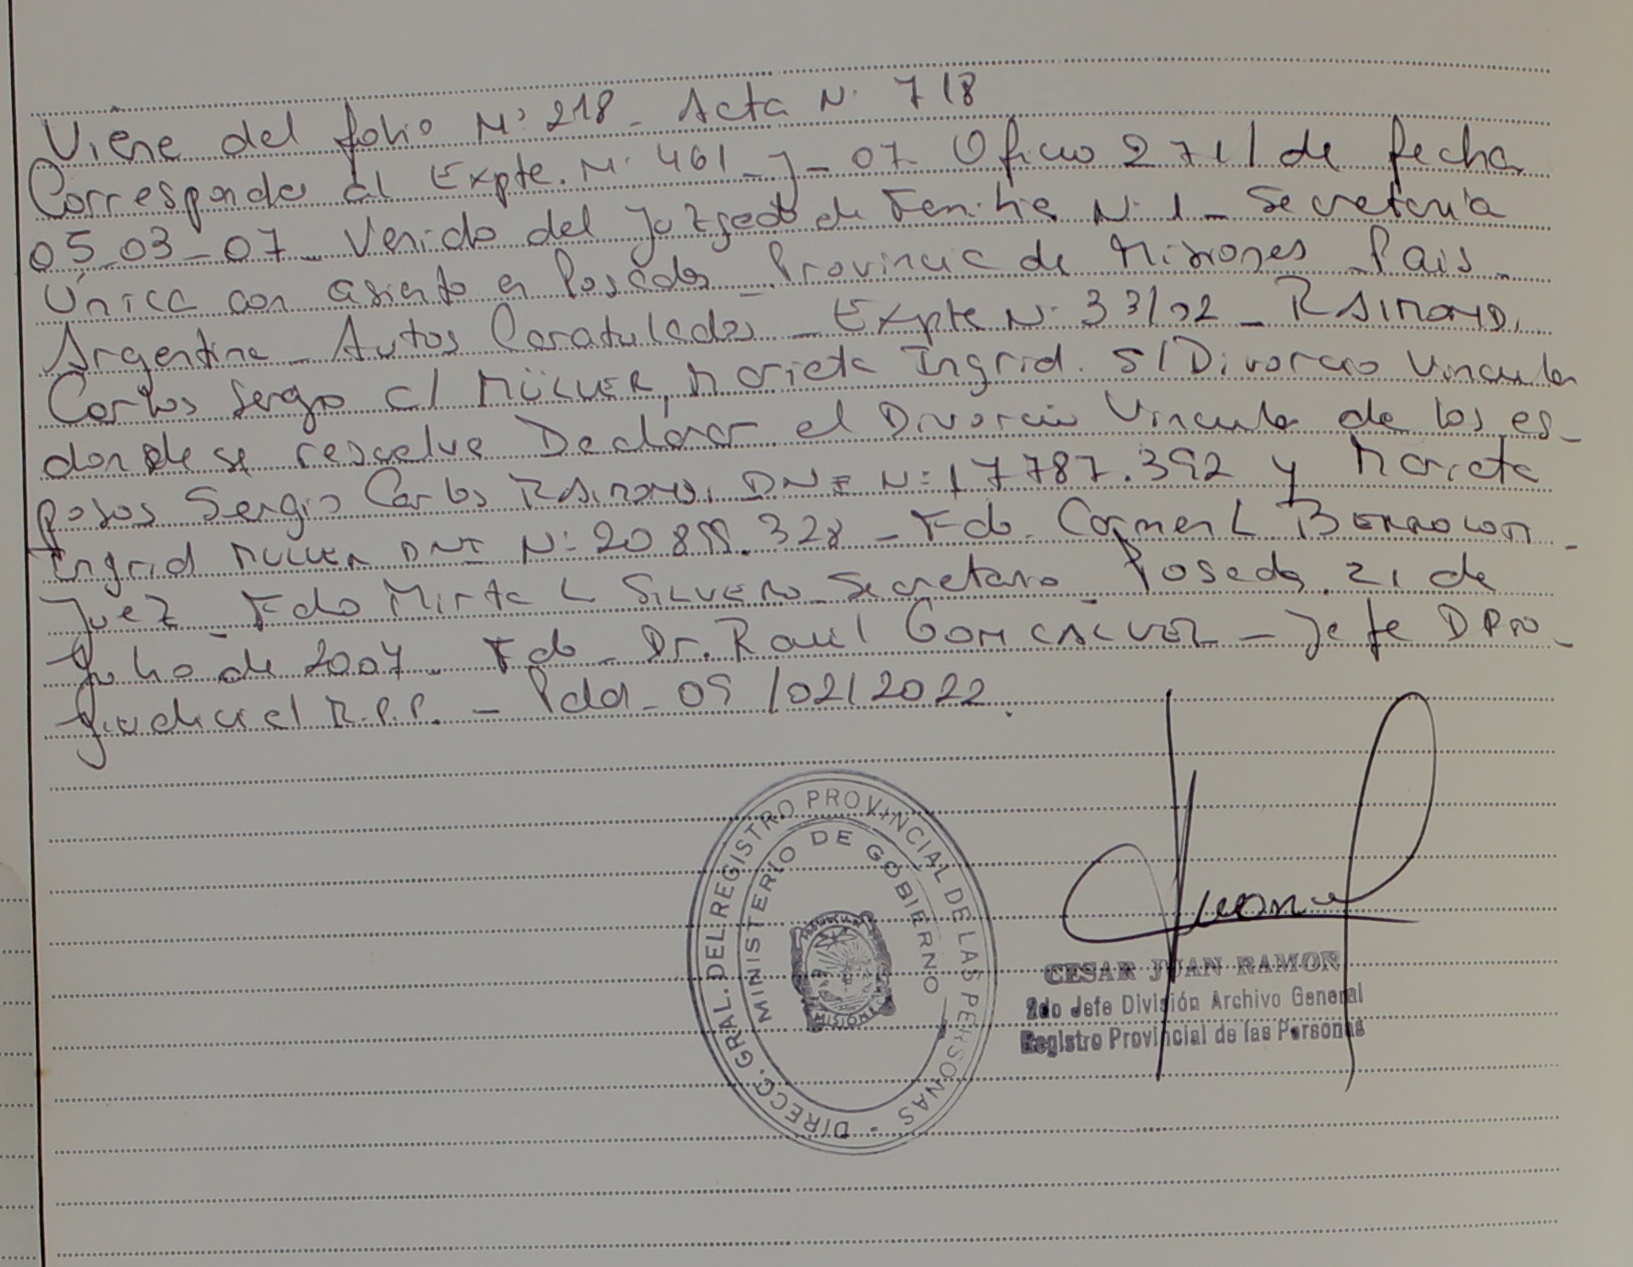 Viene del folio N° 218 - Acta N° 718
Corresponde al Expte. N° 461 - J - 07 Oficio 271/ de fecha
05-03-07 Venido del Juzgado de Familia N° 1 - Secretaría
Única con asiento en Posadas - Provincia de Misiones País
Argentina - Autos Caratulados - Expte N° 33/02 - RAIMONDI
Carlos Sergio c/ MÜLLER, Marieta Ingrid. S/ Divorcio Vincular
donde se resuelve Declarar el Divorcio Vincular de los es-
posos Sergio Carlos RAIMONDI DNI N° 17787.392 y Marieta
Ingrid MULLER DNI N° 20 899.328 - Fdo. Carmen L
Juez - Fdo Mirta L SILVERO Secretaria Posadas 21 de
Julio de 2007 - Fdo - Dr. Raul - Jefe DPTO -
Judicial R.P.P. - Pdas - 09/02/2022
DIRECC. GRAL. DEL REGISTRO PROVINCIAL DE LAS PERSONAS -
MINISTERIO DE GOBIERNO
MISIONES
CESAR JUAN RAMON
2do Jefe División Archivo General
Registro Provincial de las Personas